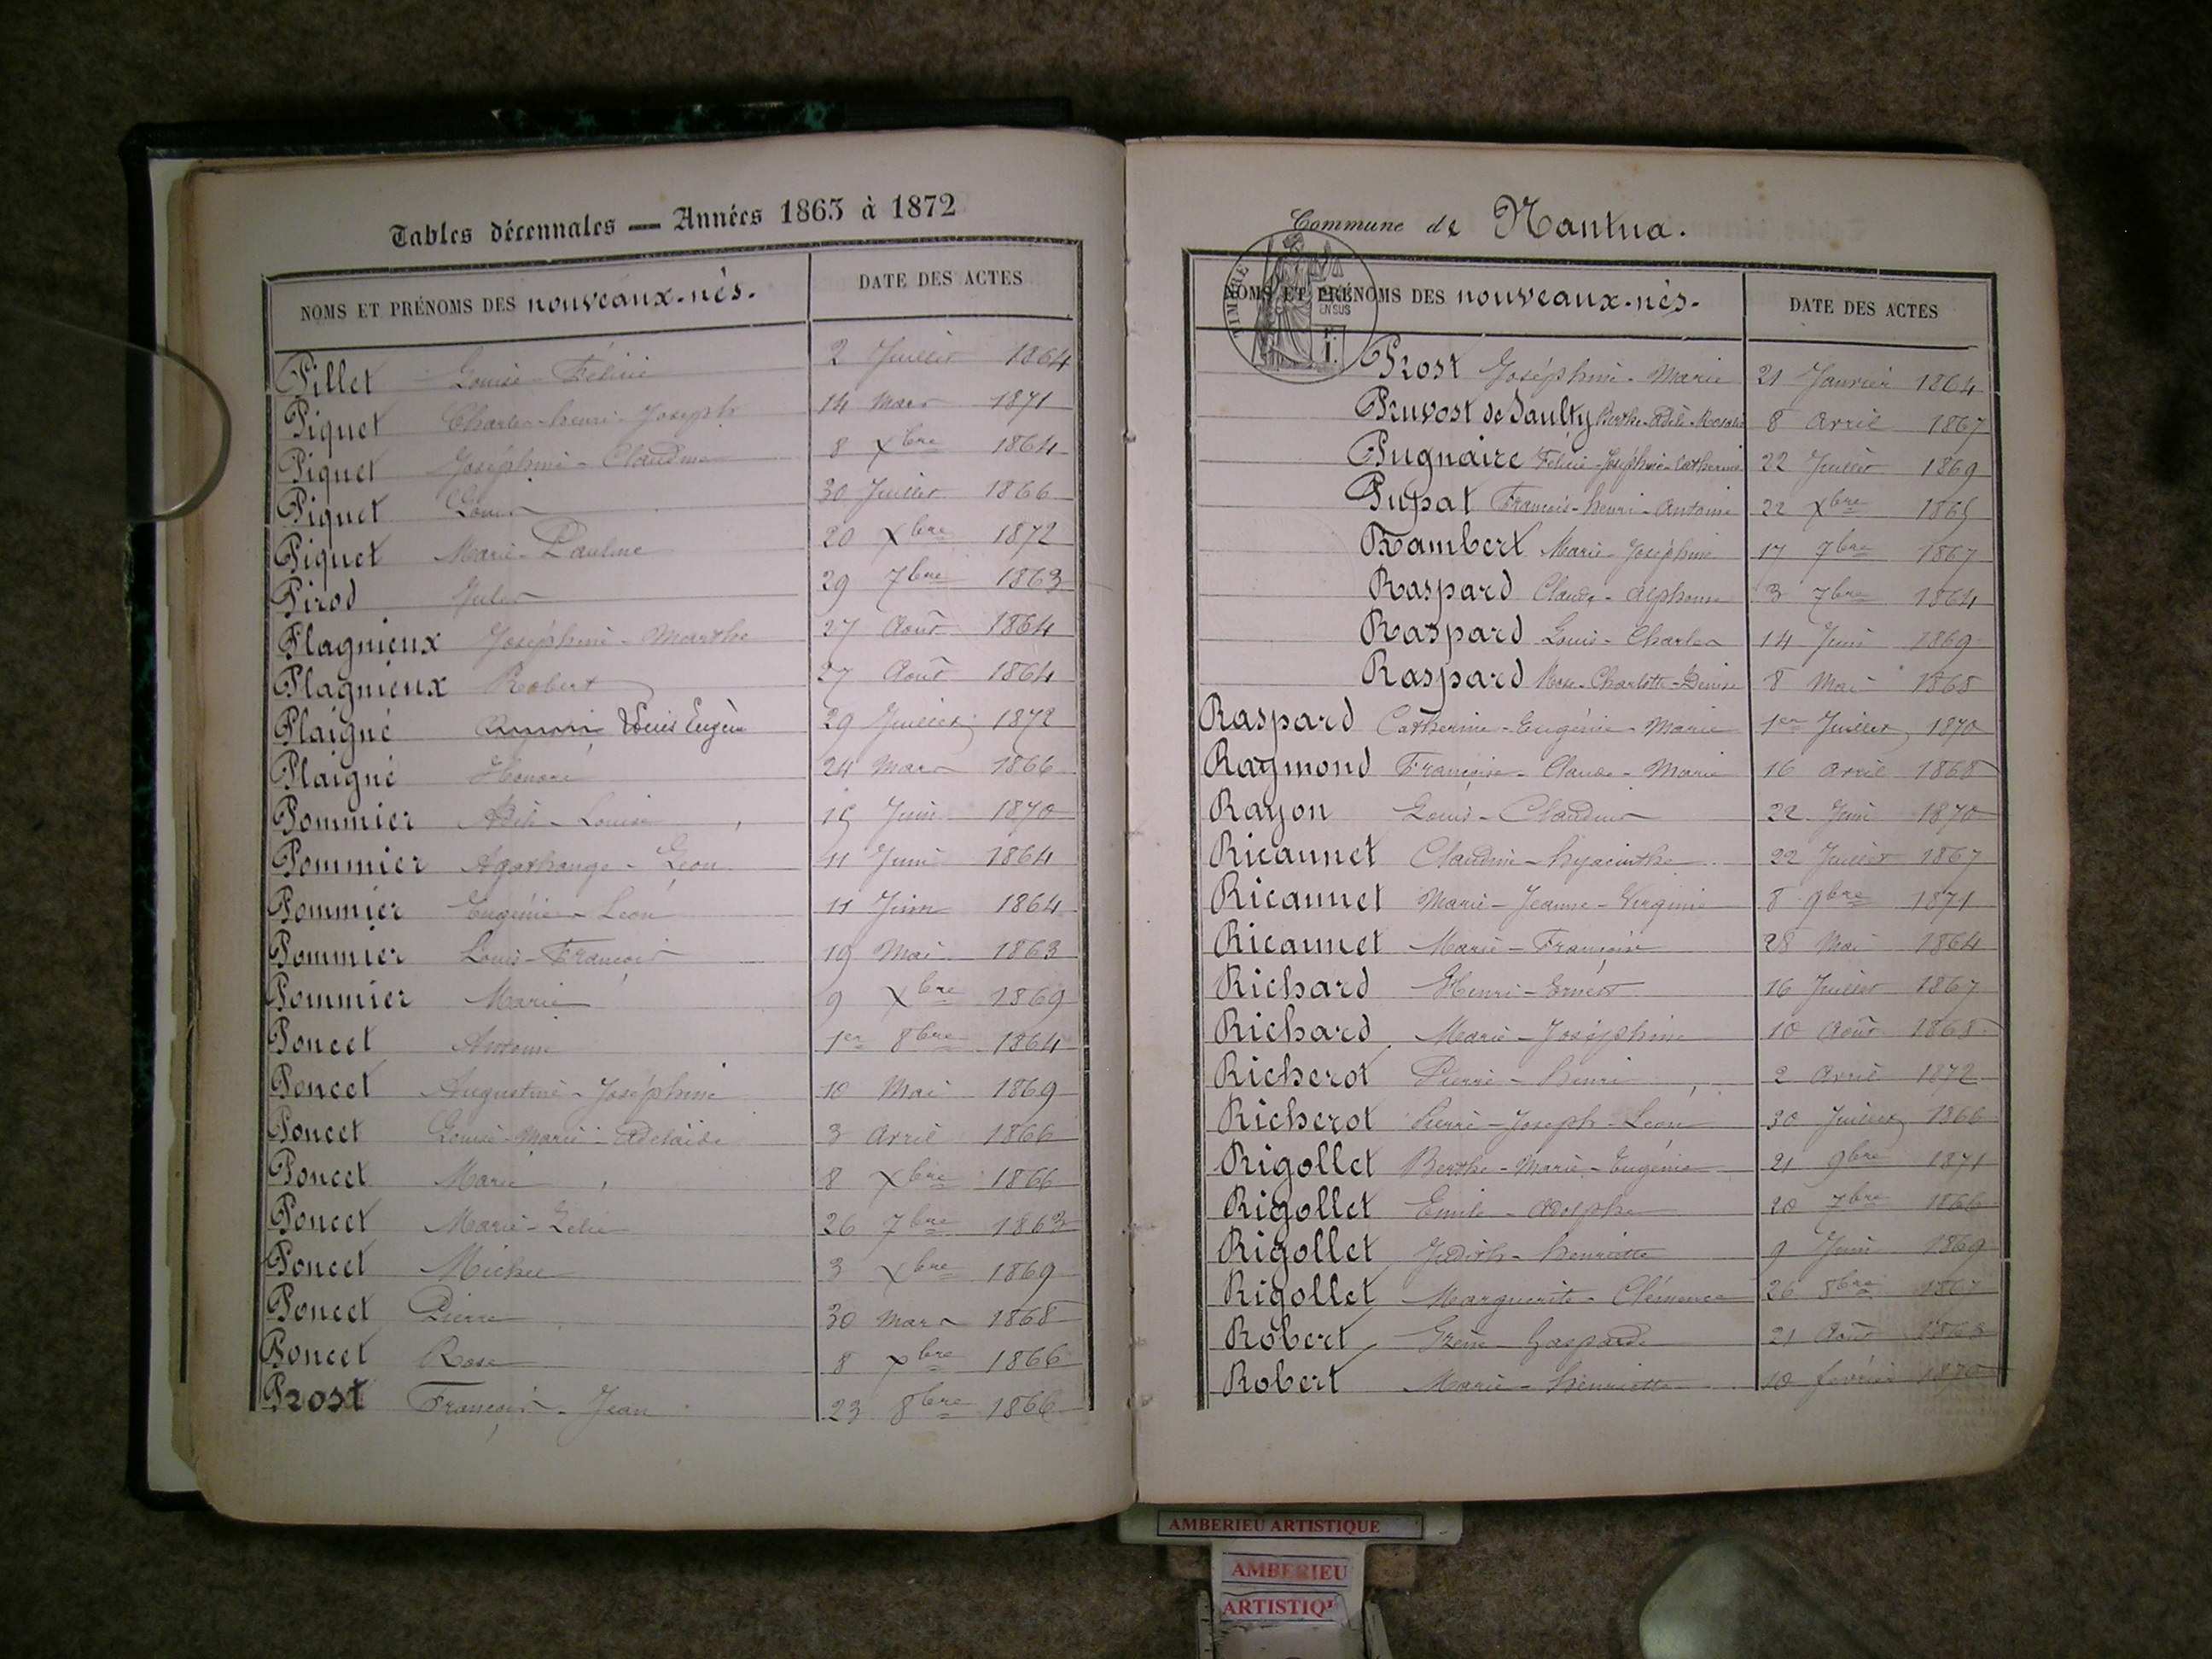 Tables décennales — Années 1863 à 1872
NOMS ET PRÉNOMS DES nouveaux-nés. DATE DES ACTES
Pillet Louise-Félicie 2 Juillet 1864
Piquet Charles-henri-Joseph 14 Mars 1871
Piquet Joséphine-Claudine 8 Xbre 1864
Piquet Louis 30 Juillet 1866
Piquet Marie-Pauline 20 Xbre 1872
Pirod Jules 29 7bre 1863
Plagnieux Joséphine-Marthe 27 Août 1864
Plagnieux Robert 27 Août 1864
Plaigne Louis Eugène 29 Juillet 1872
Plaigne Honoré 24 Mars 1866
Pommier Adèle-Louise 15 Juin 1870
Pommier Agathange-Léon 11 Juin 1864
Pommier Eugénie-Léon 11 Juin 1864
Pommier Louis-François 19 Mai 1863
Pommier Marie 9 Xbre 1869
Poncet Antoine 1er 8bre 1864
Poncet Augustine-Joséphine 10 Mai 1869
Poncet Louise-Marie-Adélaïde 3 Avril 1866
Poncet Marie 8 Xbre 1866
Poncet Marie-Lelie 26 7bre 1863
Poncet Michel 3 Xbre 1869
Poncet Pierre 30 Mars 1868
Poncet Rose 8 Xbre 1866
Prost François-Jean 23 8bre 1866
Commune de Nantua.
TIMBRE
EN SUS
NOMS ET PRÉNOMS DES nouveaux-nés. DATE DES ACTES
Prost Joséphine-Marie 21 Janvier 1864
Pruvost de Saulty Berthe-Adèle 8 Avril 1867
Pugnaire Félicie-Joséphine-Catherine 22 Juillet 1869
Pupat François-henri-Antoine 22 Xbre 1865
Rambert Marie-Joséphine 17 7bre 1867
Raspard Claude-Alphonse 3 7bre 1864
Raspard Louis-Charles 14 Juin 1869
Raspard Rose-Charlotte-Denise 8 Mai 1868
Raspard Catherine-Eugénie-Marie 1er Juillet 1870
Raymond Françoise-Claude-Marie 16 Avril 1868
Rayon Louis-Claudius 22 Juin 1870
Ricaunet Claudine-hyacinthe 22 Juillet 1867
Ricaunet Marie-Jeanne-Virginie 8 9bre 1871
Ricaunet Marie-Françoise 28 Mai 1864
Richard Henri-Ernest 16 Juillet 1867
Richard Marie-Joséphine 10 Août 1868
Richerot Pierre-henri 2 Avril 1872
Richerot Pierre-Joseph-Léon 30 Juillet 1866
Rigollet Berthe-Marie-Eugénie 21 9bre 1871
Rigollet Emile-Adolphe 20 7bre 1866
Rigollet Judith-henriette 9 Juin 1869
Rigollet Marguerite-Clémence 26 8bre 1867
Robert Irène-Gasparde 21 Août 1863
Robert Marie-henriette 10 février 1870
AMBERIEU ARTISTIQUE
AMBERIEU
ARTISTIQ